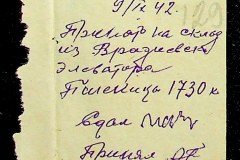 9/IX 42.
129
Принято на склад
из Вражевского
Элеватора
Пшеница 1730 к
Сдал
Принял